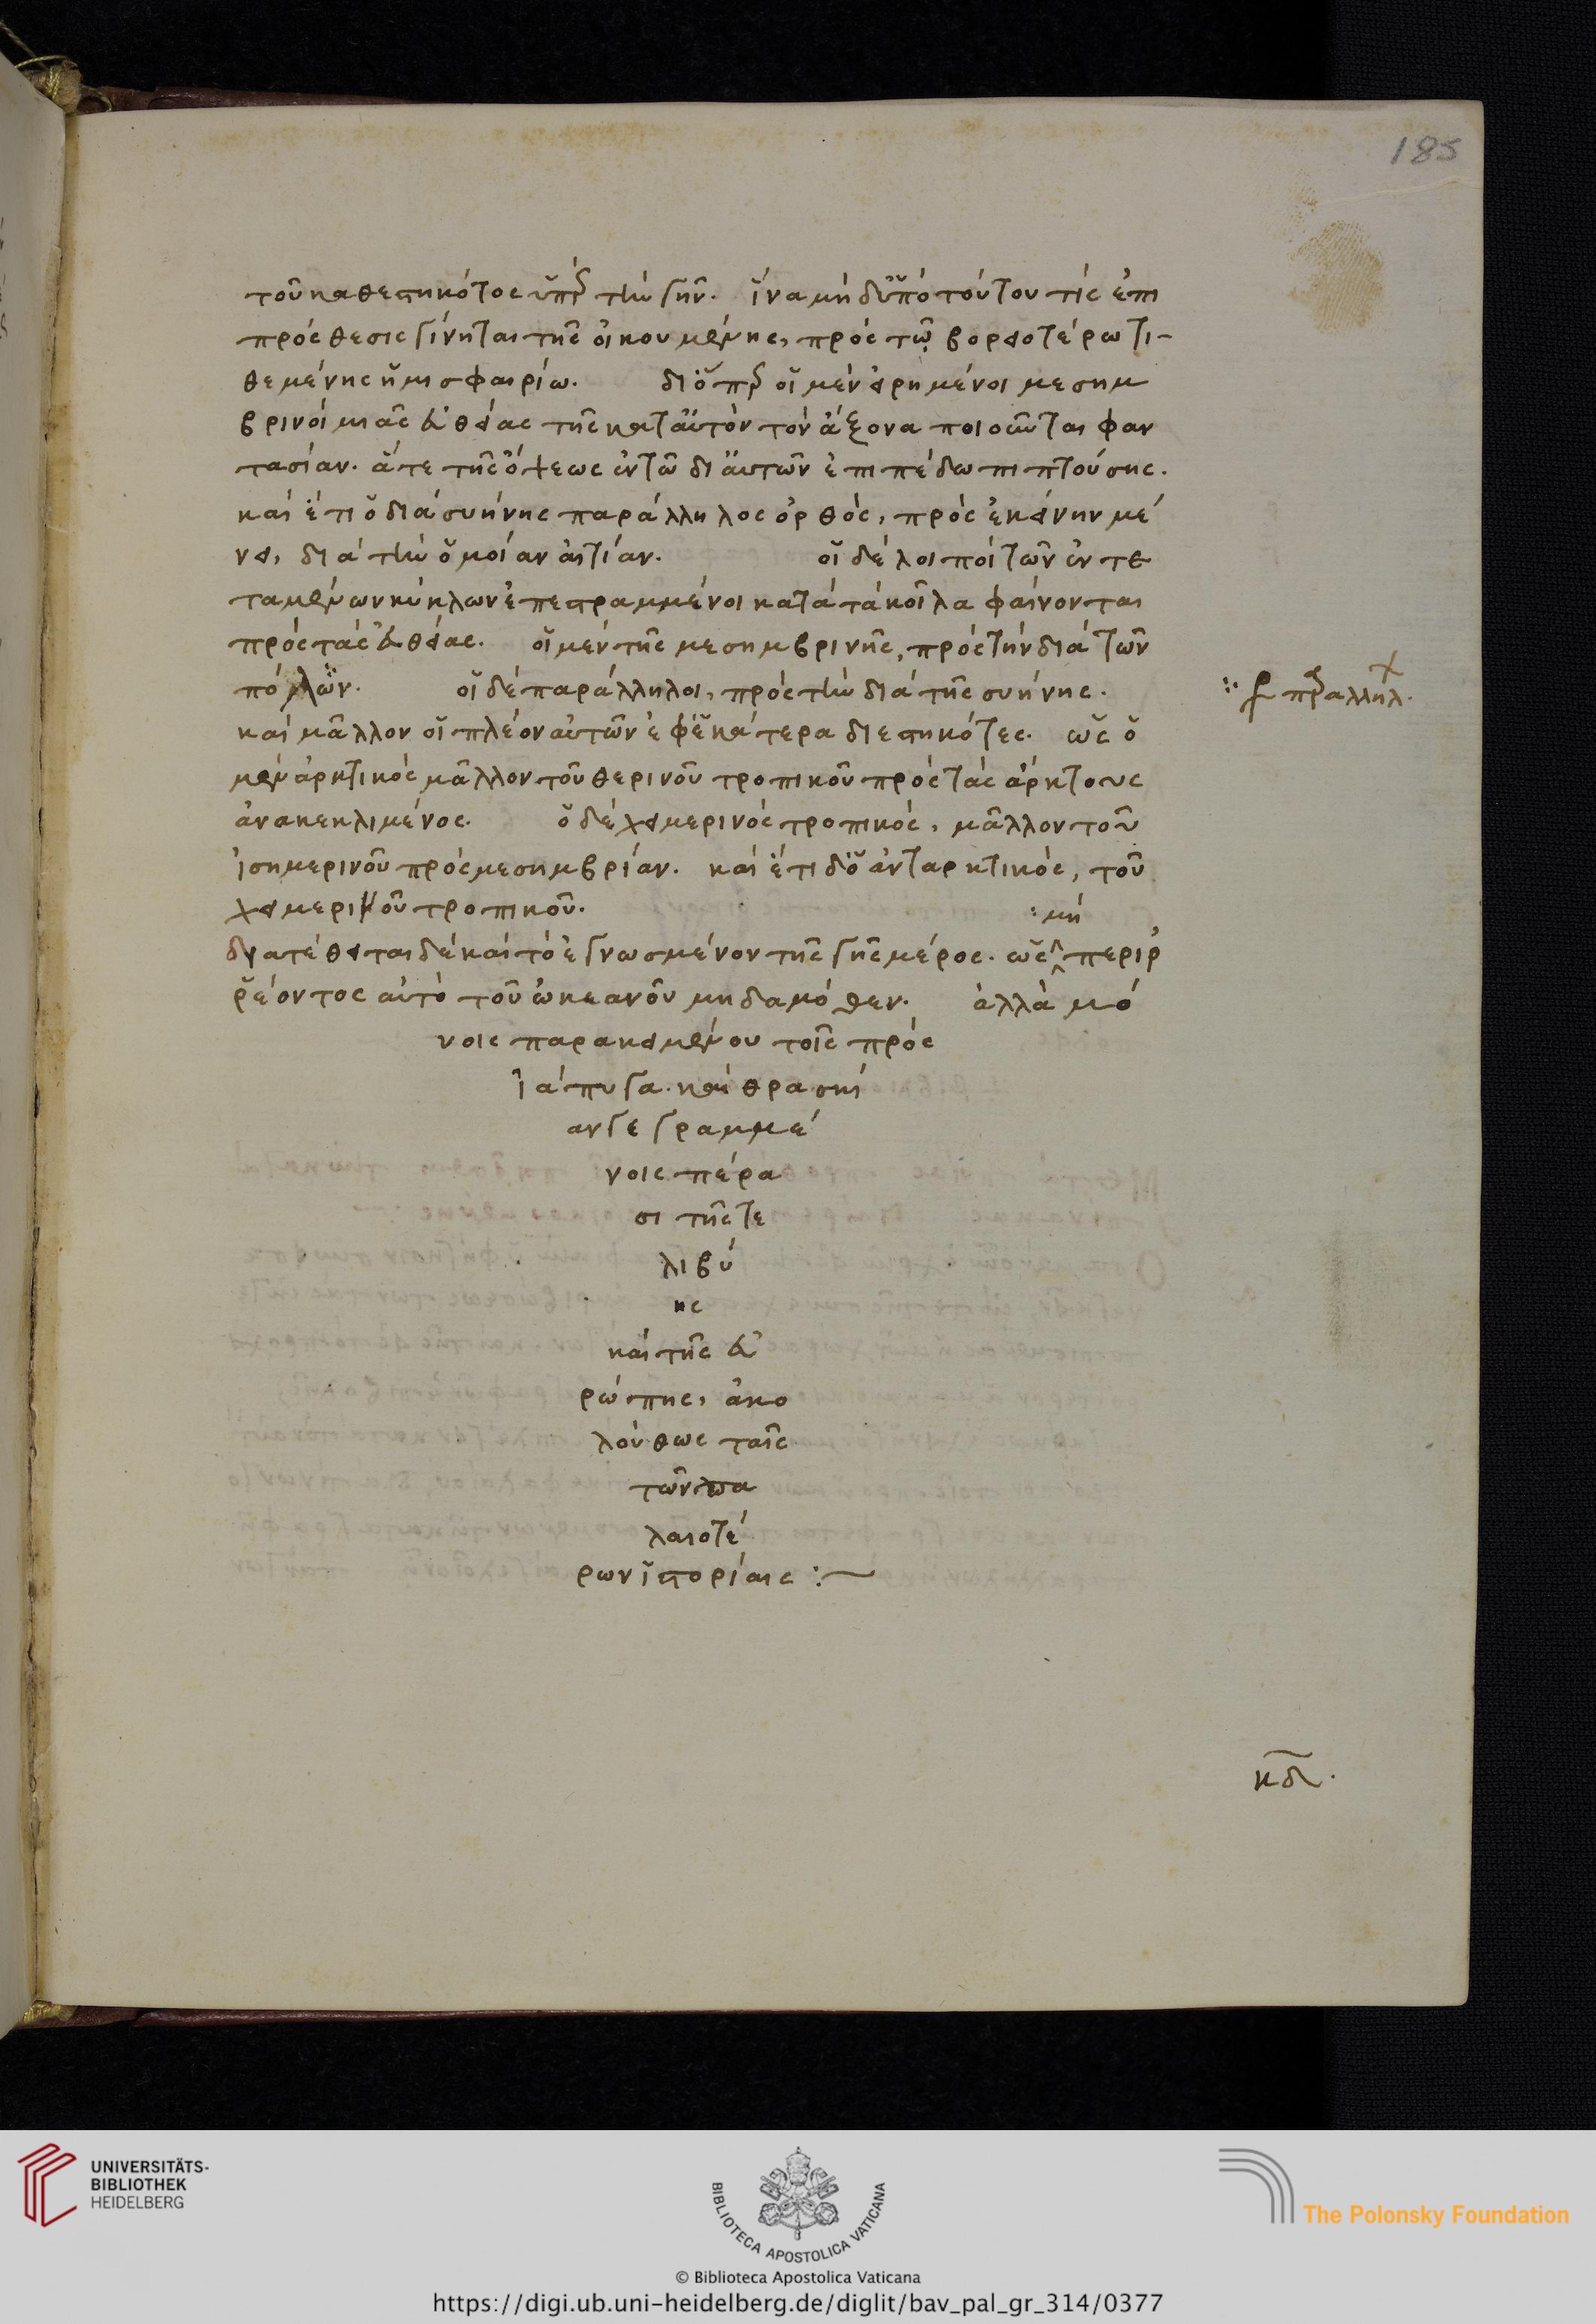 185
τοῦ καθεστηκότος ὑπὲρ τὴν γῆν. ἵνα μὴ δ' ὑπὸ τούτου τίς ἐπι
πρόσθεσις γίνηται τῆς οἰκουμένης, πρὸς τῷ βορειοτέρω τι-
θεμένης ἡμισφαιρίω. διόπερ οἱ μὲν εἰρημένοι μεσημ
βρινοὶ μιᾶς εὐθείας τῆς κατ' αὐτὸν τὸν ἄξονα ποιοῦνται φαν
τασίαν. ἅτε τῆς ὄψεως ἐν τῶ δι' αὐτῶν ἐπιπέδω πιπτούσης.
καὶ ἔτι ὁ διὰ συήνης παράλληλος ὀρθὸς, πρὸς ἐκείνην μέ
νει, διὰ τὴν ὁμοίαν αἰτίαν. οἱ δὲ λοιποὶ τῶν ἐντε
ταμένων κύκλων ἐπεστραμμένοι κατὰ τὰ κοῖλα φαίνονται
πρὸς τὰς εὐθείας. οἱ μὲν τῆς μεσημβρινῆς, πρὸς τὴν διὰ τῶν
πόλων. οἱ δὲ παράλληλοι, πρὸς τὴν διὰ τῆς συήνης.
παραλλήλ.
καὶ μᾶλλον οἱ πλέον αὐτῶν ἐφ' ἑκάτερα διεστηκότες. ὡς ὁ
μὲν ἀρκτικὸς μᾶλλον τοῦ θερινοῦ τροπικοῦ πρὸς τὰς ἄρκτους
ἀνακεκλιμένος. ὁ δὲ χειμερινὸς τροπικὸς, μᾶλλον τοῦ
ἰσημερινοῦ πρὸς μεσημβρίαν. καὶ ἔτι δ' ὁ ἀνταρκτικὸς, τοῦ
χειμερινοῦ τροπικοῦ.
μὴ
διατέθειται δὲ καὶ τὸ ἐγνωσμένον τῆς γῆς μέρος. ὡς περιρ
ῥέοντος αὐτὸ τοῦ ὠκεανοῦ μηδαμόθεν. ἀλλὰ μό
νοις παρακειμένου τοῖς πρὸς
ἰάπυγα. καὶ θρασκί
αν γεγραμμέ
νοις πέρα
σι τῆς τε
λιβύ
ης
καὶ τῆς εὐ
ρώπης, ἀκο
λούθως ταῖς
τῶν πα
λαιοτέ
ρων ἱστορίαις :~
κδ.
UNIVERSITÄTS-
BIBLIOTHEK
HEIDELBERG
BIBLIOTECA APOSTOLICA VATICANA
The Polonsky Foundation
© Biblioteca Apostolica Vaticana
https://digi.ub.uni-heidelberg.de/diglit/bav_pal_gr_314/0377